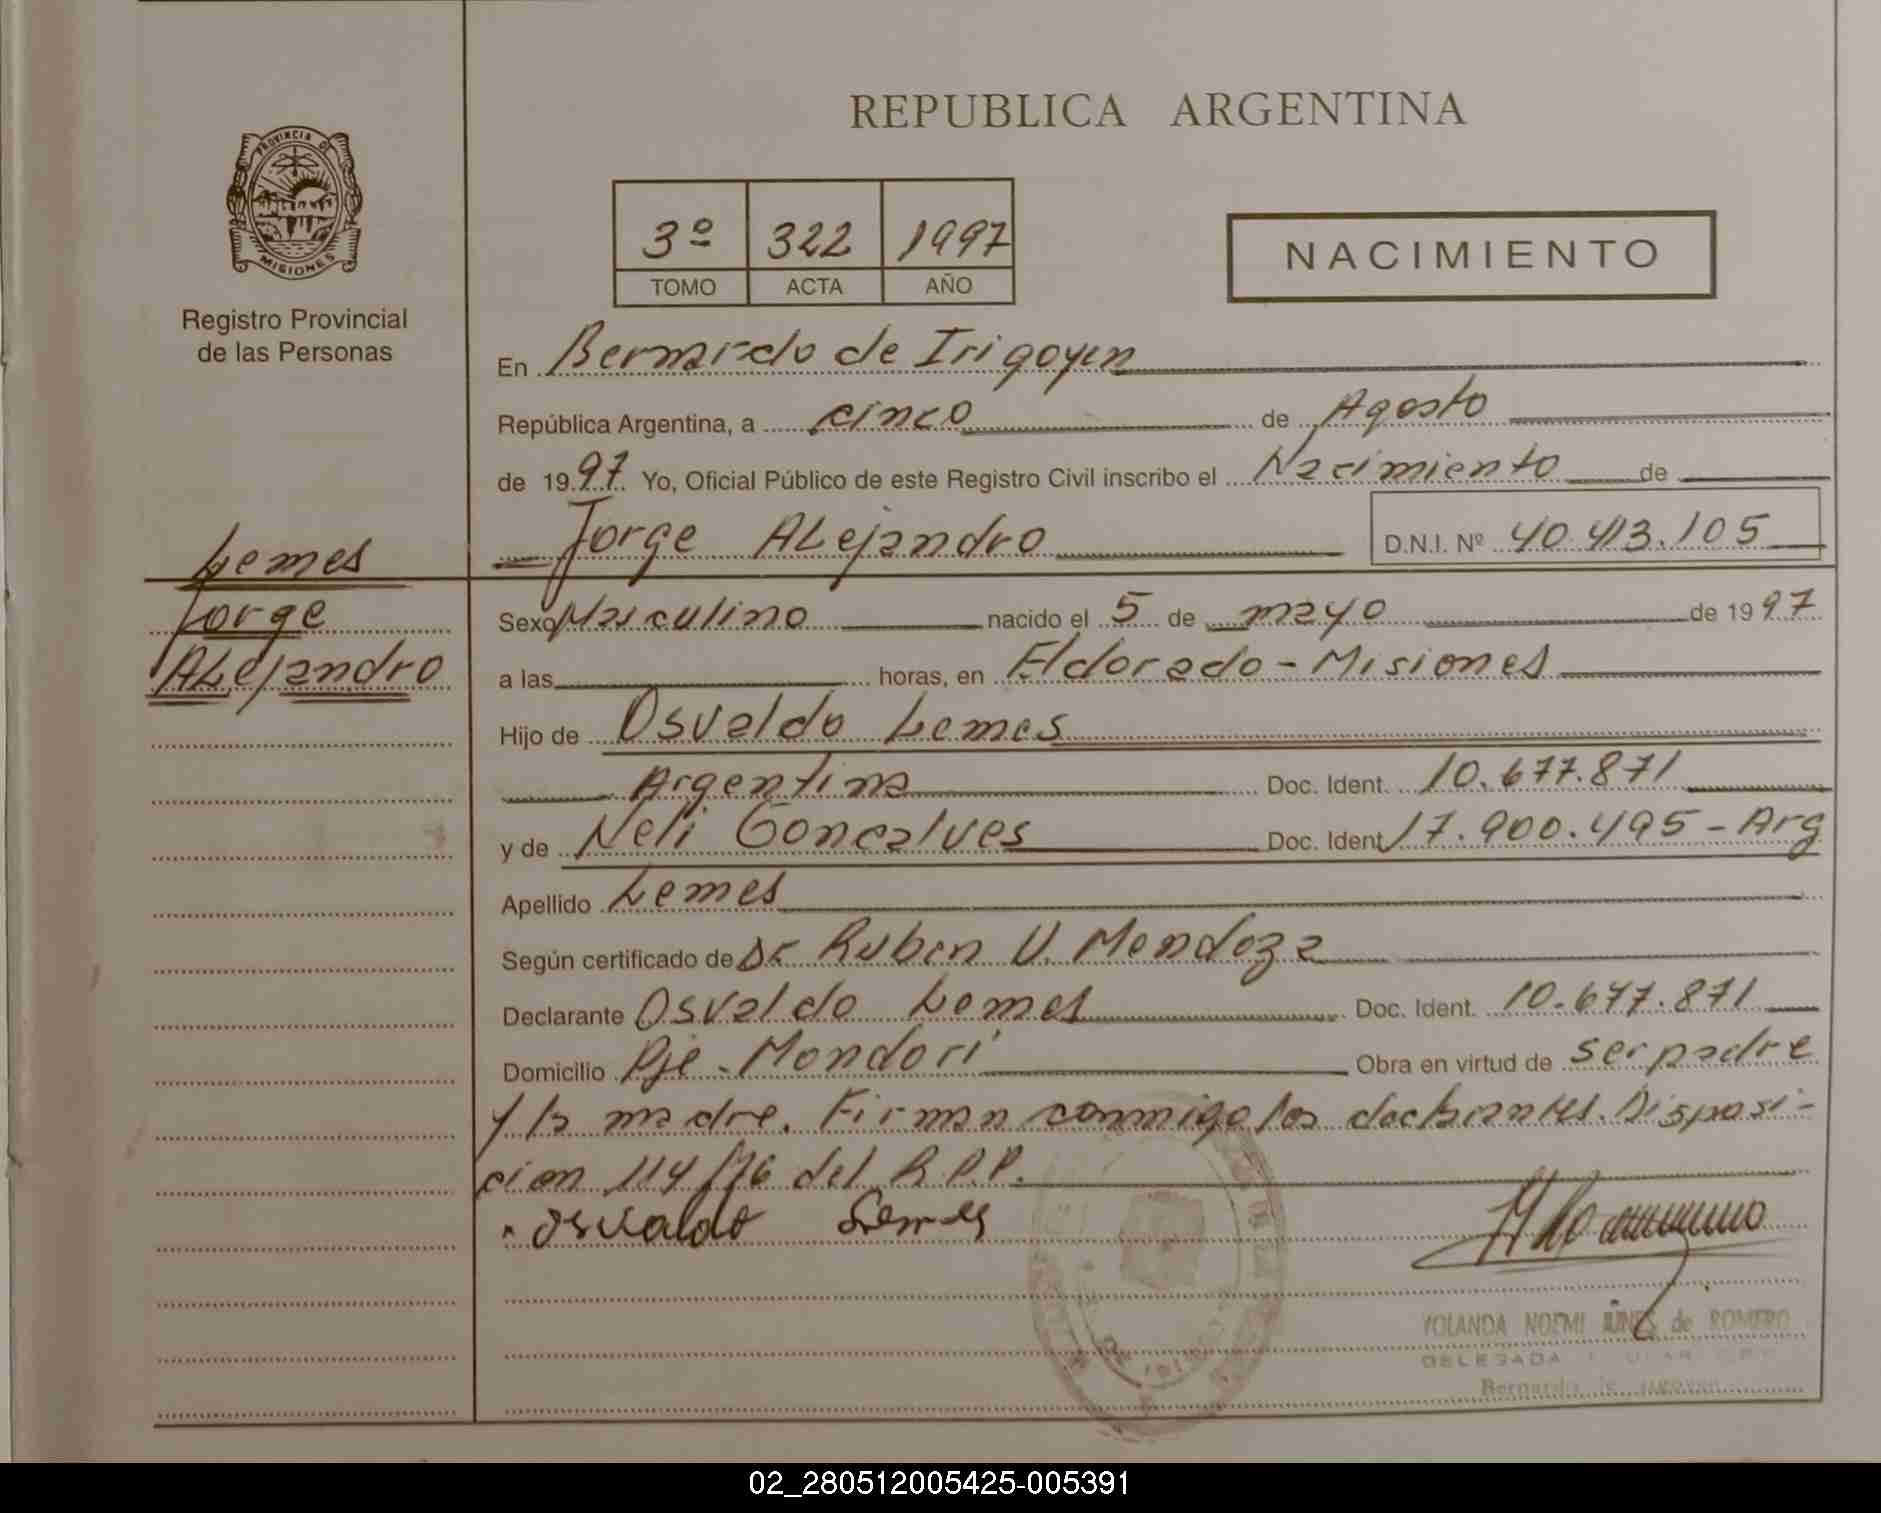 PROVINCIA DE
MISIONES
Registro Provincial
de las Personas
Lemes
Jorge
ALejandro
REPUBLICA ARGENTINA
3º 322 1997
TOMO ACTA AÑO
NACIMIENTO
En Bernardo de Irigoyen
República Argentina, a cinco de Agosto
de 1997 Yo, Oficial Público de este Registro Civil inscribo el Nacimiento de
Jorge ALejandro D.N.I. Nº 40.413.105
Sexo Masculino nacido el 5 de mayo de 1997
a las horas, en Eldorado - Misiones
Hijo de Osvaldo Lemes
Argentina Doc. Ident. 10.677.871
y de Neli Goncalves Doc. Ident 17.900.495 - Arg
Apellido Lemes
Según certificado de Dr Ruben V. Mendoza
Declarante Osvaldo Lemes Doc. Ident. 10.677.871
Domicilio Pje. Mondori Obra en virtud de ser padre
y la madre. Firman conmigo los declarantes. Disposi-
cion 114/76 del R.P.P.
Osvaldo Lemes
YOLANDA NOEMI de ROMERO
DELEGADA
Bernardo de
02_280512005425-005391